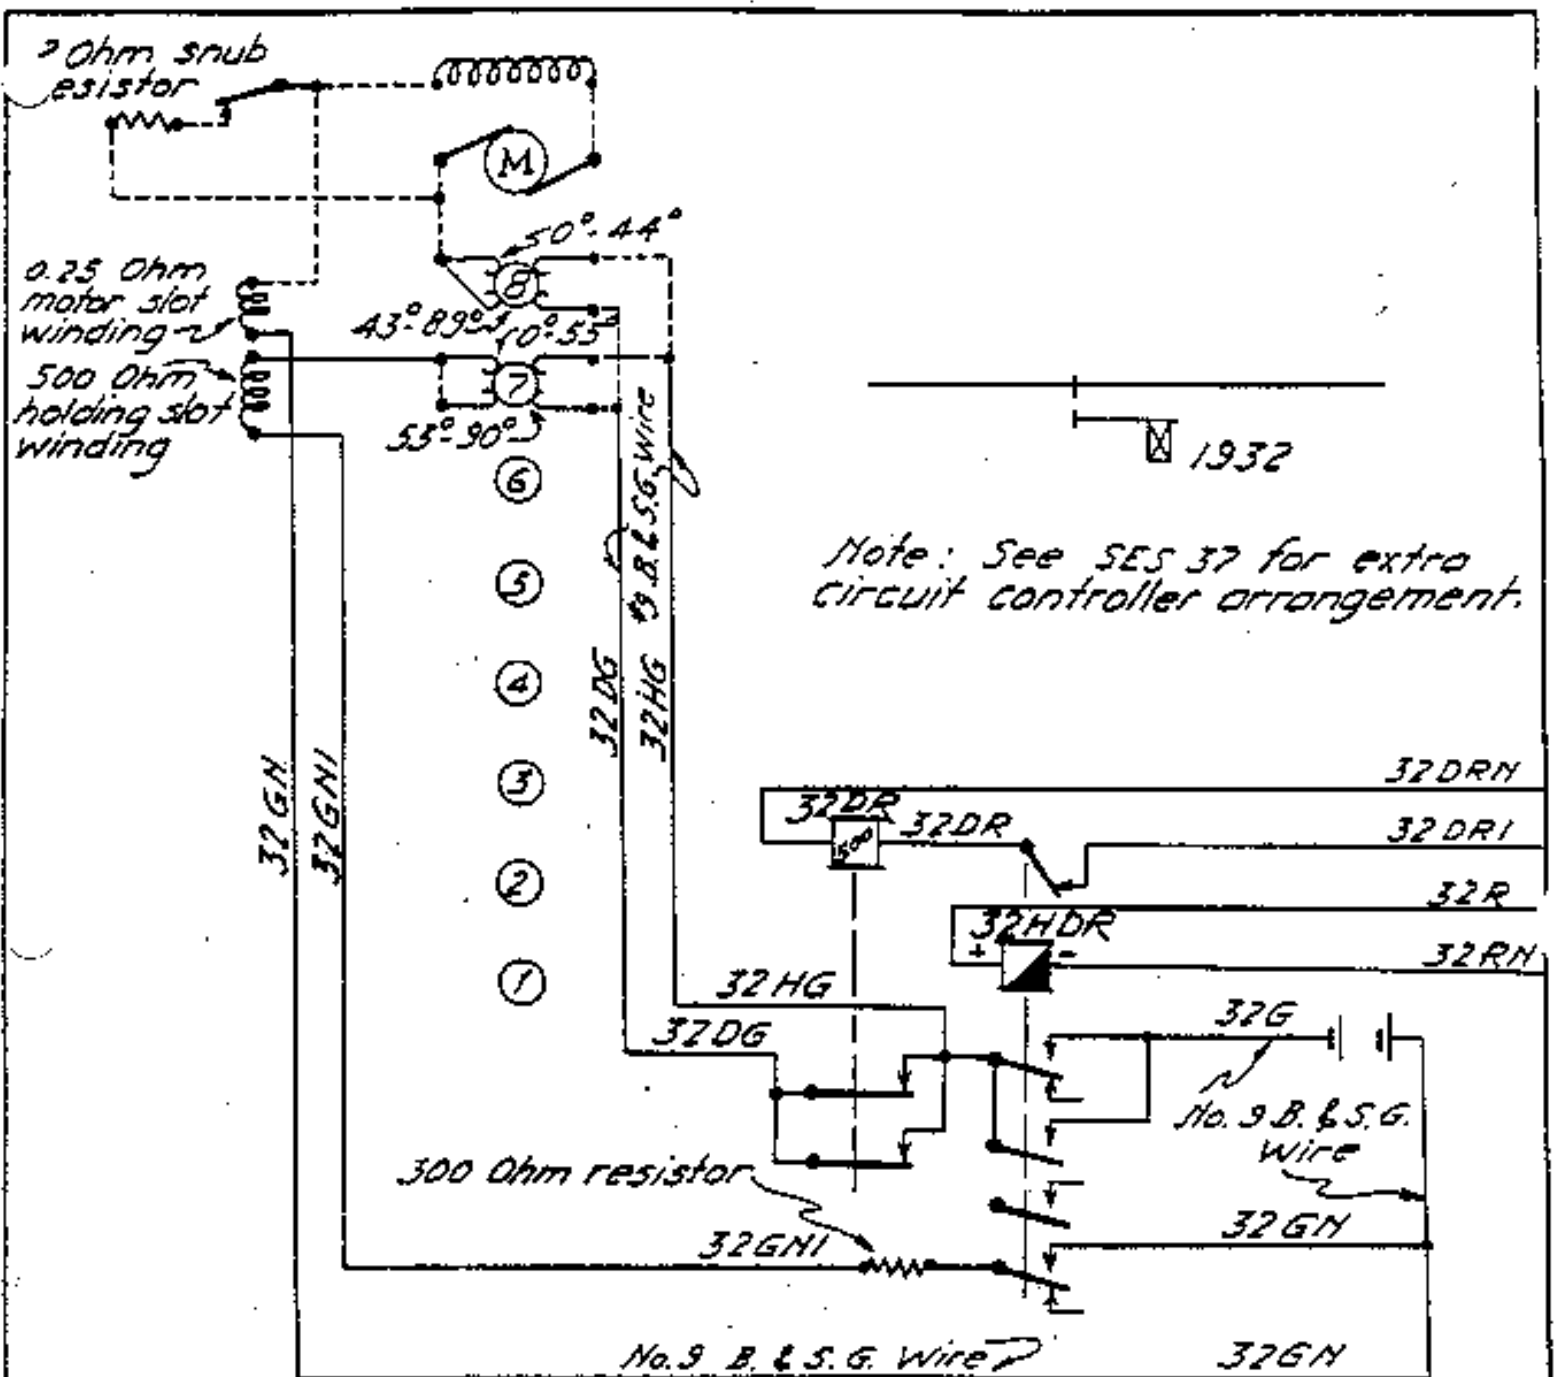 Ohm snub
esistor
M
50°-44°
0.25 Ohm
motor slot
winding
8
43°-89°
0°-55
500 Ohm
holding slot
winding
7
55°-90°
6
5
4
3
2
1
#9 B. & S.G. Wire
32DG
32HG
32GN
32GN1
1932
Note: See SES 37 for extra
circuit controller arrangement.
32DRN
32DR
32DR
32DR1
500
32R
32HDR
+ -
32RN
32HG
32G
32DG
No. 9 B. & S. G.
Wire
300 Ohm resistor
32GN1
32GN
No. 9 B. & S. G. Wire
32GN